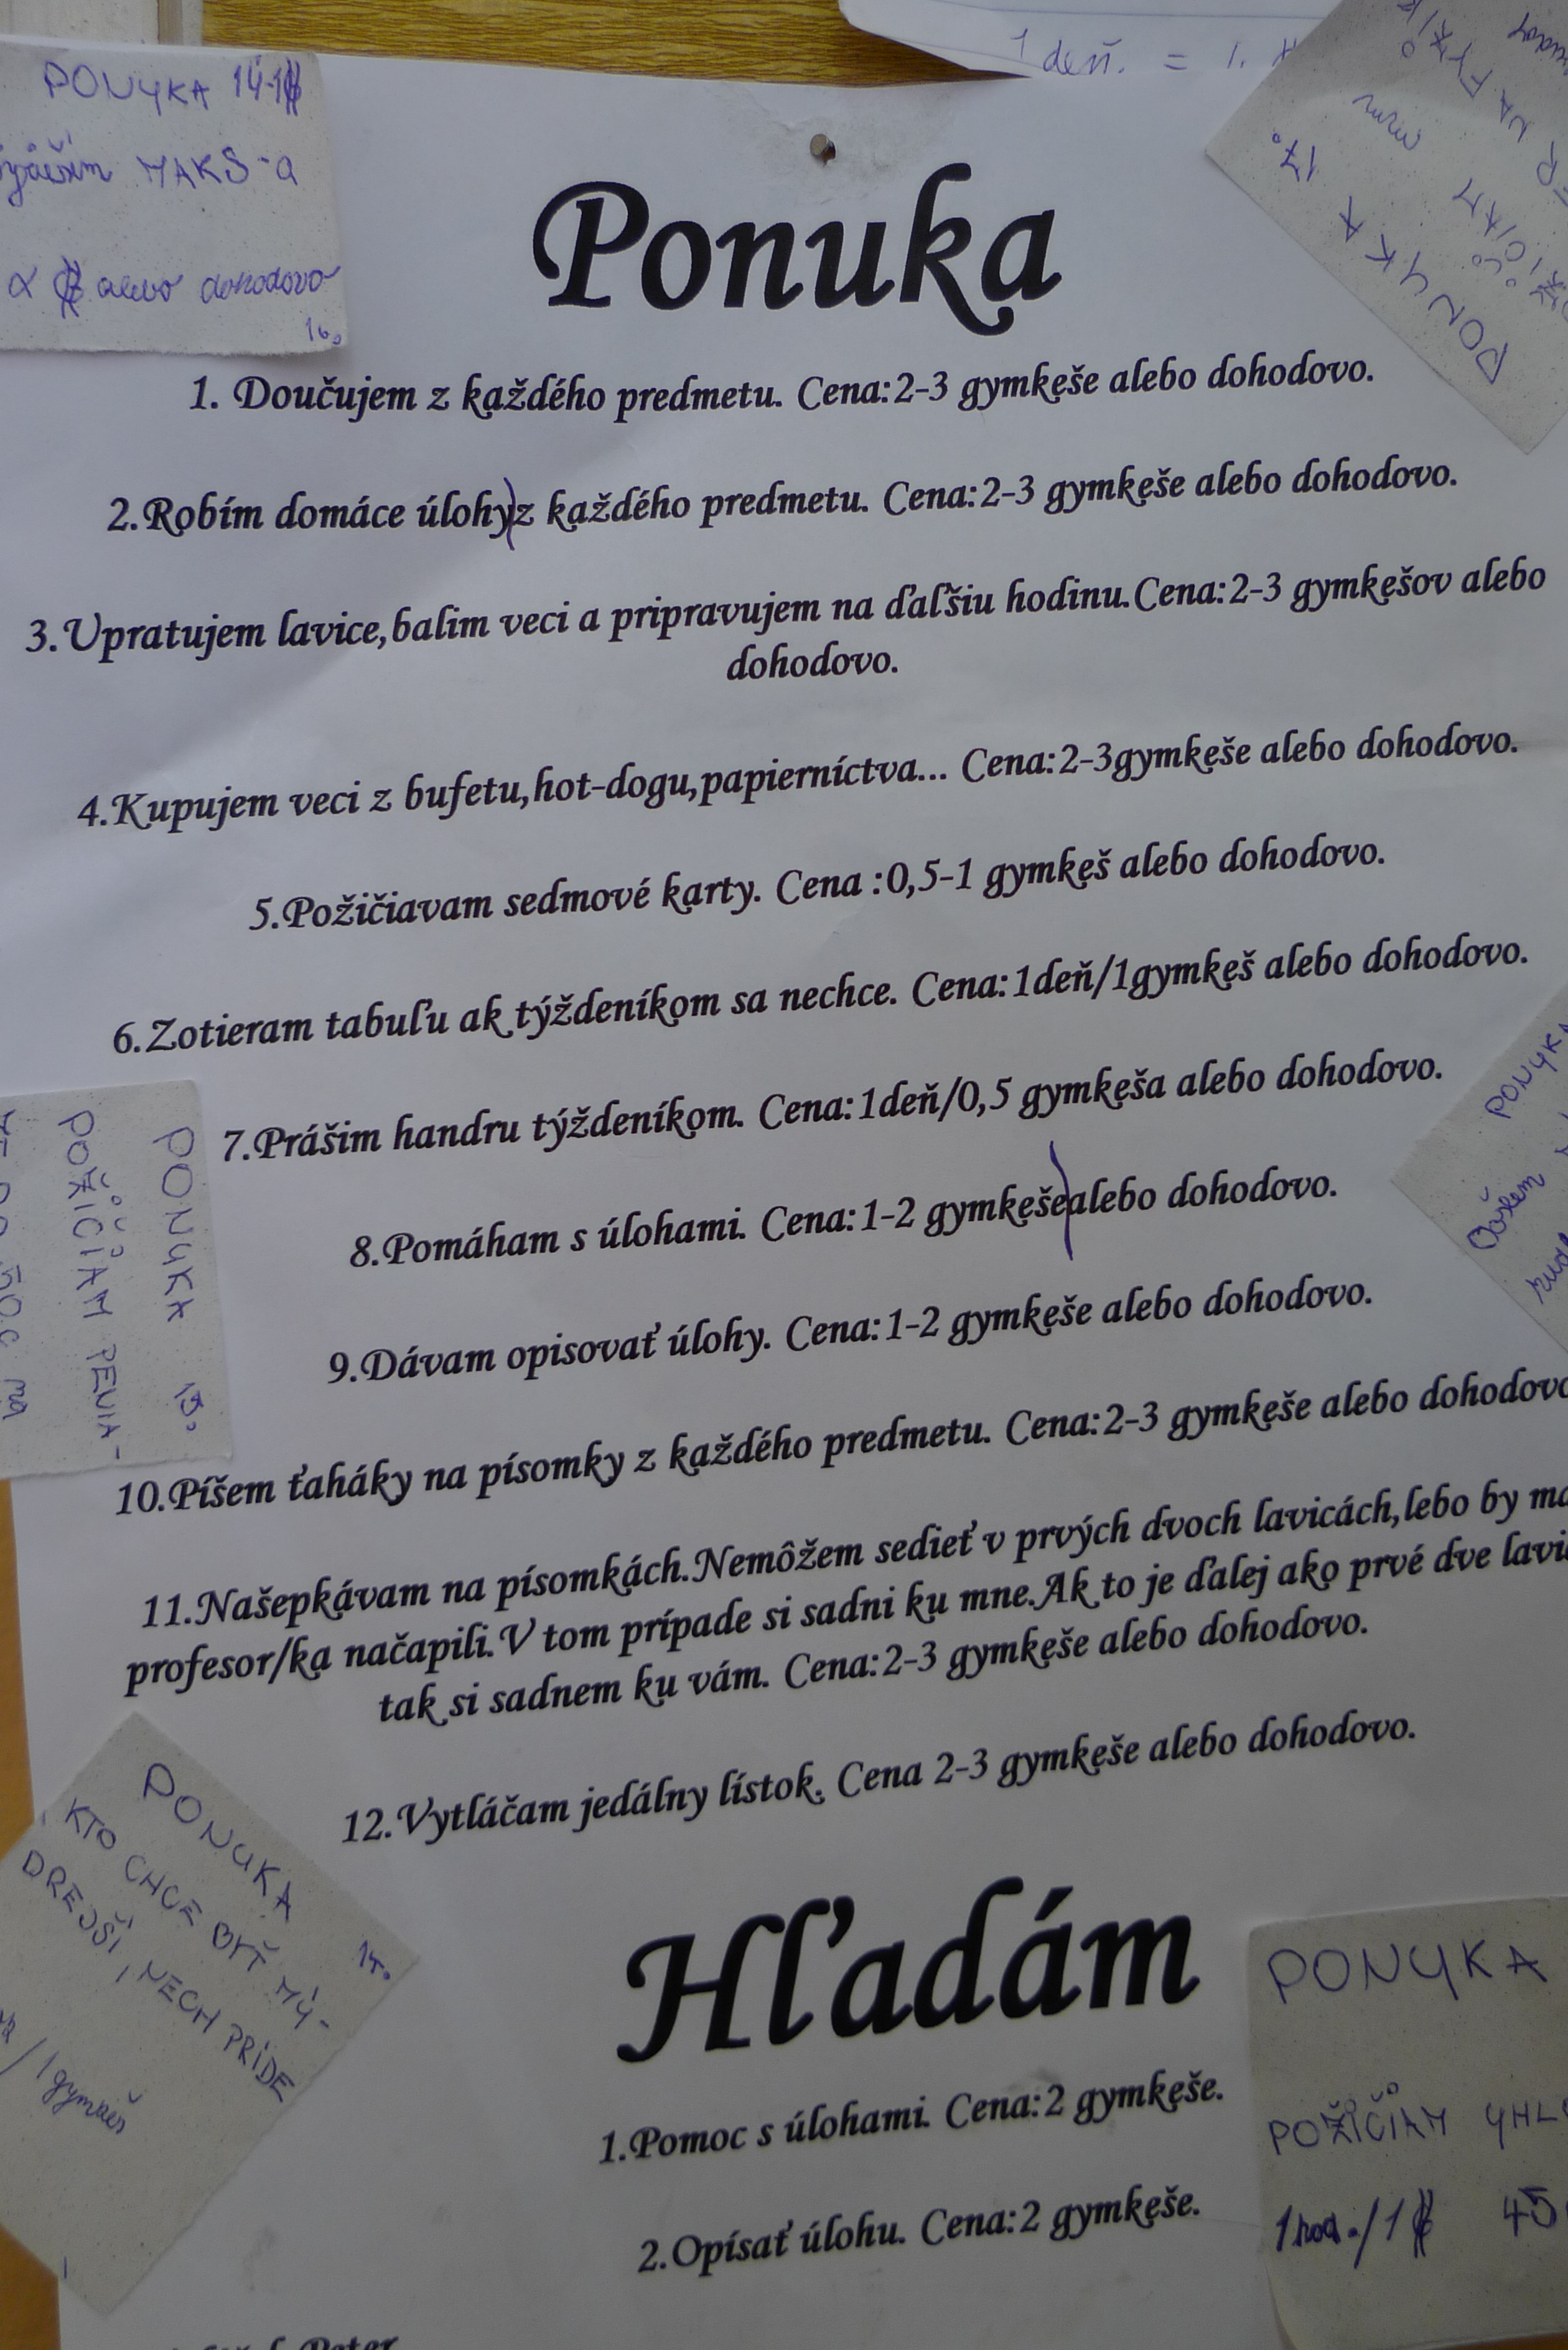 PONUKA 14-1
MAKS-a
alebo dohodovo
16.
1 deň. = 1.
17.
PONUKA
Ponuka
1. Doučujem z každého predmetu. Cena:2-3 gymkeše alebo dohodovo.
2.Robím domáce úlohy z každého predmetu. Cena:2-3 gymkeše alebo dohodovo.
3.Upratujem lavice,balim veci a pripravujem na ďaľšiu hodinu.Cena:2-3 gymkešov alebo
dohodovo.
4.Kupujem veci z bufetu,hot-dogu,papierníctva... Cena:2-3gymkeše alebo dohodovo.
5.Požičiavam sedmové karty. Cena :0,5-1 gymkeš alebo dohodovo.
6.Zotieram tabuľu ak týždeníkom sa nechce. Cena:1deň/1gymkeš alebo dohodovo.
7.Prášim handru týždeníkom. Cena:1deň/0,5 gymkeša alebo dohodovo.
8.Pomáham s úlohami. Cena:1-2 gymkeše alebo dohodovo.
9.Dávam opisovať úlohy. Cena:1-2 gymkeše alebo dohodovo.
10.Píšem ťaháky na písomky z každého predmetu. Cena:2-3 gymkeše alebo dohodovo
11.Našepkávam na písomkách.Nemôžem sedieť v prvých dvoch lavicách,lebo by ma
profesor/ka načapili.V tom prípade si sadni ku mne.Ak to je ďalej ako prvé dve lavi
tak si sadnem ku vám. Cena:2-3 gymkeše alebo dohodovo.
12.Vytláčam jedálny lístok. Cena 2-3 gymkeše alebo dohodovo.
PONUKA 15.
POŽIČIAM PENIA-
PONUK
PONUKA 15.
KTO CHCE BYŤ MÚ-
DREJŠÍ, NECH PRÍDE
/1gymkeš
Hľadám
1.Pomoc s úlohami. Cena:2 gymkeše.
2.Opísať úlohu. Cena:2 gymkeše.
PONUKA
POŽIČIAM UHL
1hod./1 45
Peter